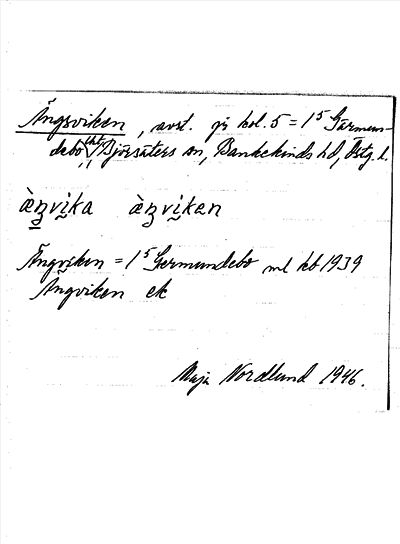 Ängsviken, avst. på kol. 5 = 1⁵ Gärmun-
debo tht, Björsäters sn, Bankekinds hd, Östg. l.
àŋvi̯ka àŋvi̯ken
Ängviken = 1⁵ Germundebo ml kb 1939
Ängviken ek
Maja Nordlund 1946.